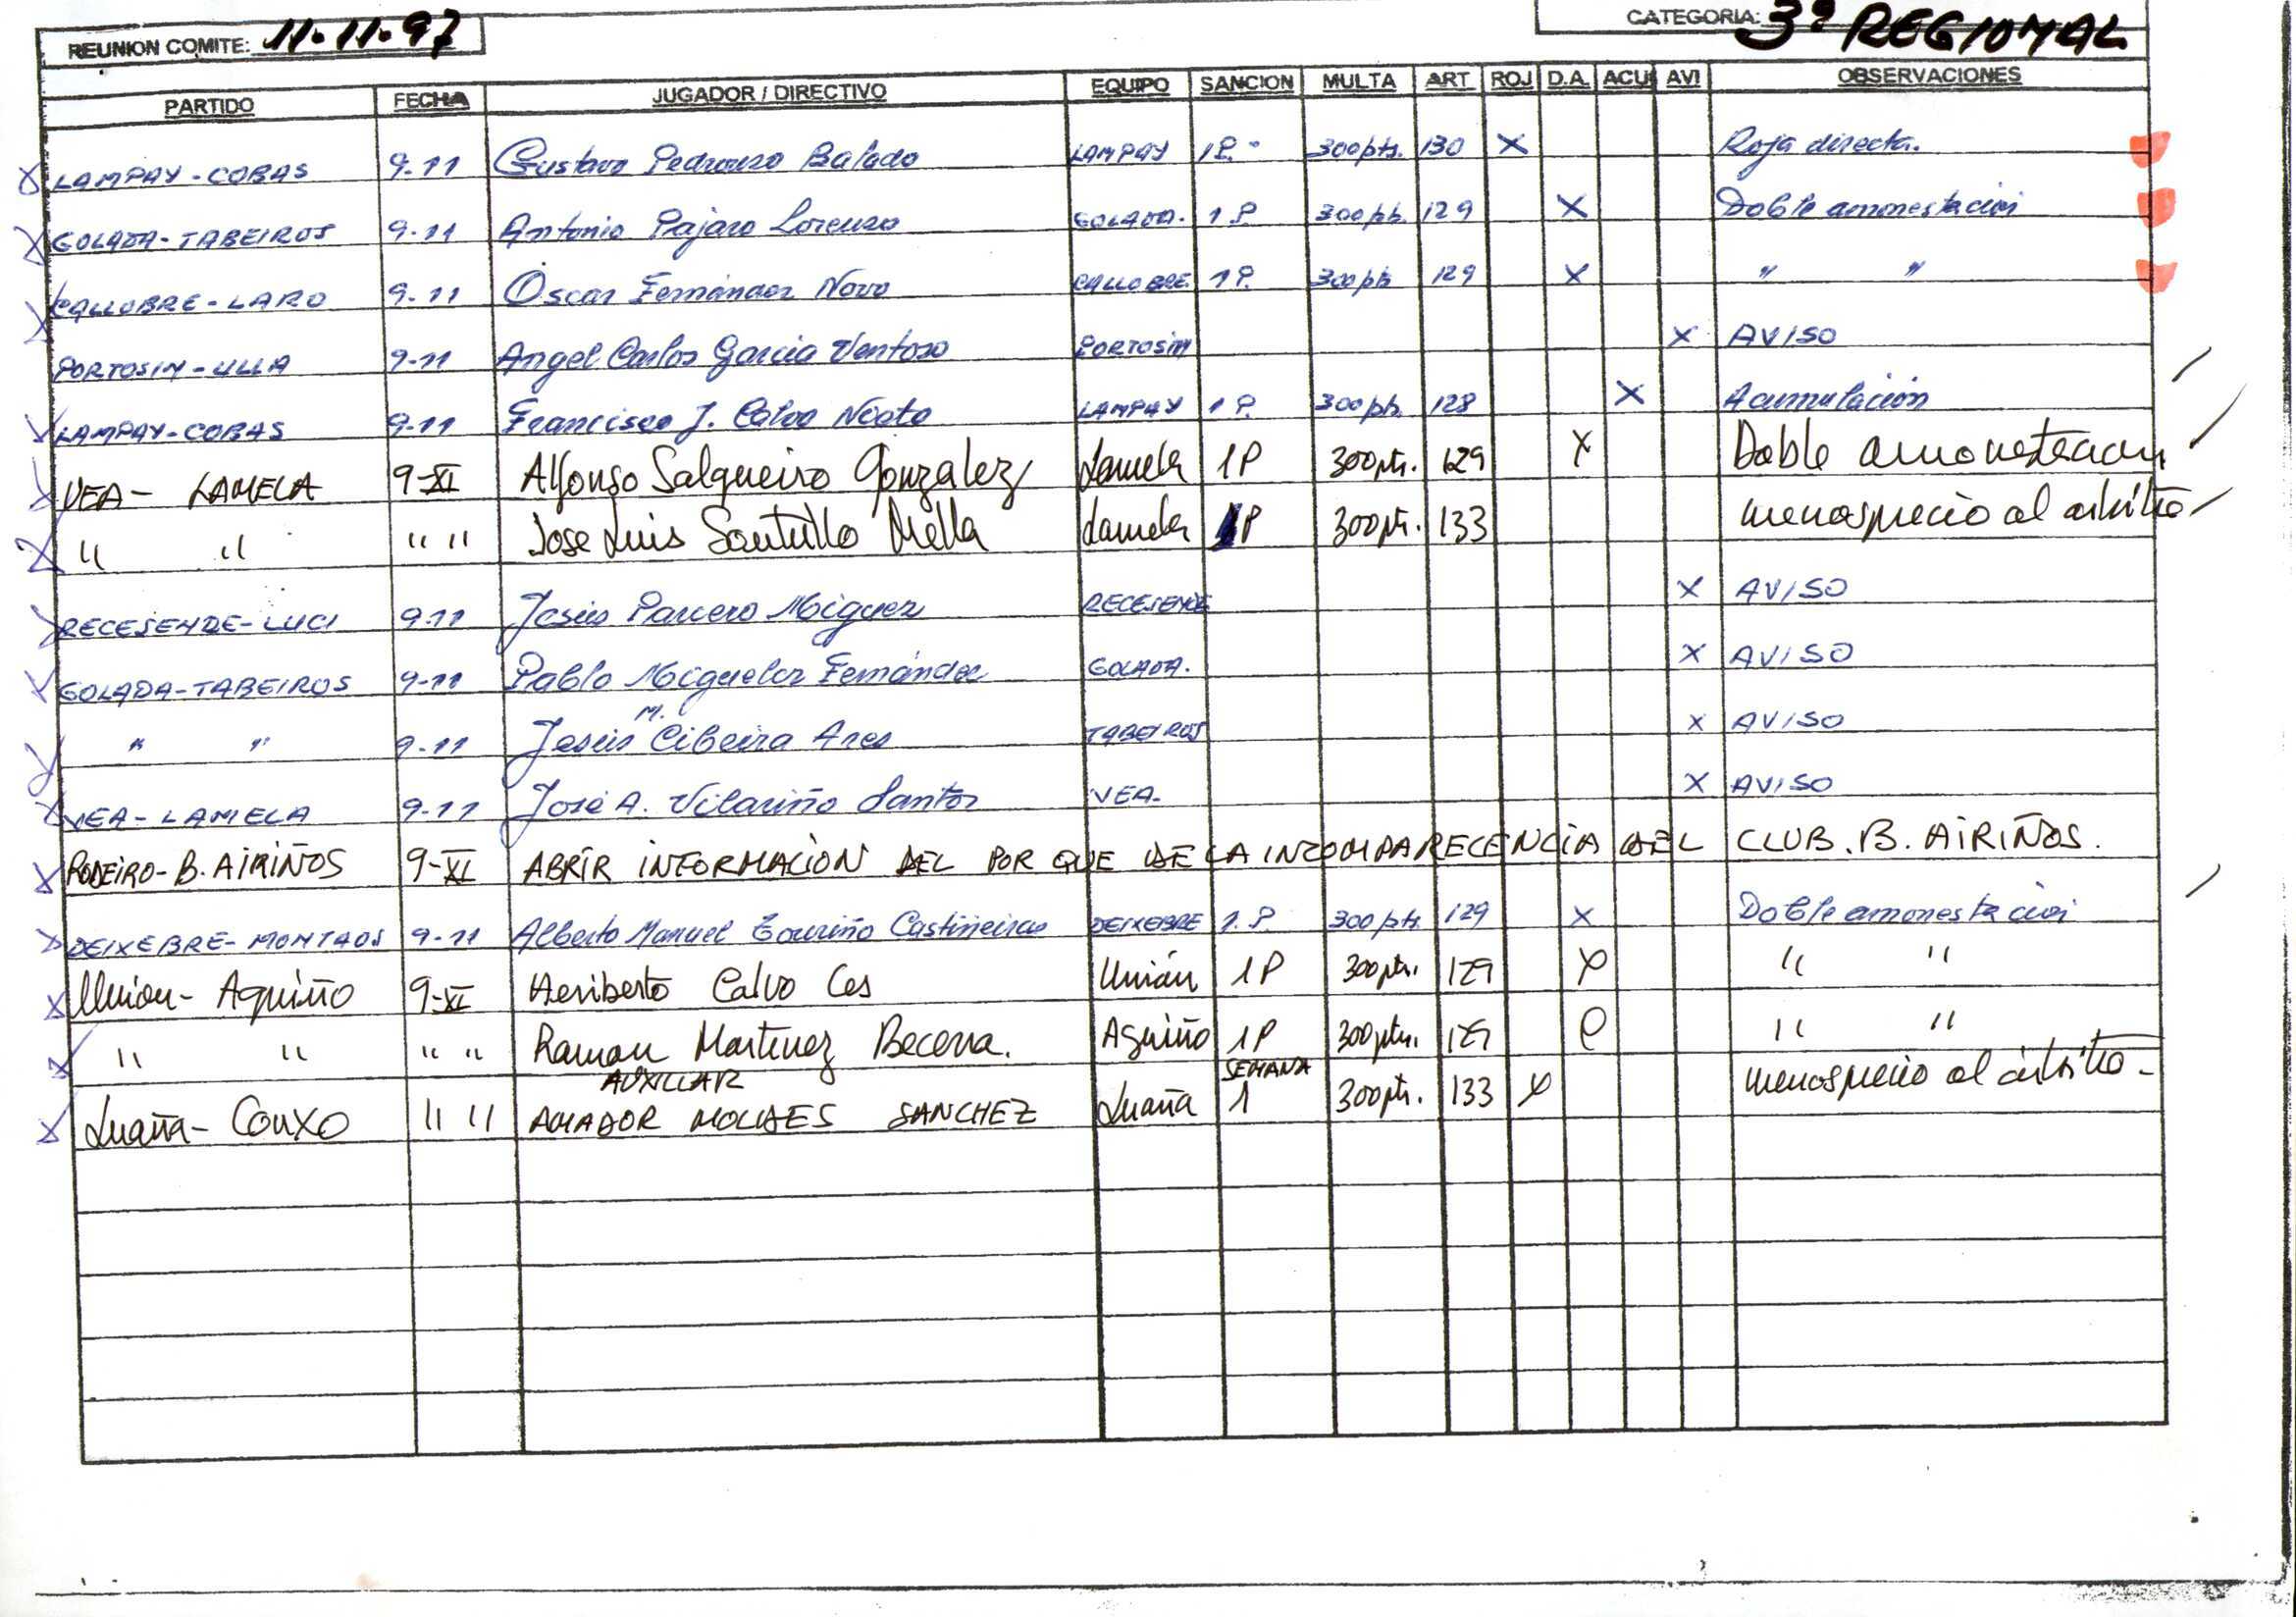 REUNION COMITE: 11.11.97 CATEGORIA: 3ª REGIONAL
PARTIDO FECHA JUGADOR / DIRECTIVO EQUIPO SANCION MULTA ART ROJ D.A. ACU AVI OBSERVACIONES
X LAMPAY-COBAS 9-11 Gustavo Pedrouzo Balado LAMPAY 1P. 300pts. 130 X Roja directa.
X GOLADA-TABEIROS 9-11 Antonio Pajaro Lorenzo GOLADA. 1P. 300pts. 129 X Doble amonestación
X CALLOBRE-LARO 9-11 Óscar Fernández Novo CALLOBRE 1P. 300pts 129 X " "
PORTOSIN-ULLA 9-11 Angel Carlos García Ventoso PORTOSIN X AVISO
X LAMPAY-COBAS 9-11 Francisco J. Calvo Nieto LAMPAY 1P. 300pts. 128 X Acumulación
X VEA- LAMELA 9-XI Alfonso Salgueiro Gonzalez Lamela 1P 300pts. 129 X Doble amonestacion
X " " " " Jose Luis Santullo Mella Lamela 1P 300pts. 133 menosprecio al arbitro
X RECESENDE-LUCI 9-11 Jesús Parcero Míguez RECESENDE X AVISO
X GOLADA-TABEIROS 9-11 Pablo Miguelez Fernández GOLADA. X AVISO
X " " 9-11 Jesús M. Cibeira Ares TABEIROS X AVISO
X VEA-LAMELA 9-11 José A. Vilariño Santos VEA- X AVISO
X RODEIRO-B. AIRIÑOS 9-XI ABRIR INFORMACION DEL POR QUE DE LA INCOMPARECENCIA DEL CLUB. B. AIRIÑOS.
X DEIXEBRE-MONTAOS 9-11 Alberto Manuel Touriño Castiñeiras DEIXEBRE 1.P. 300pts. 129 X Doble amonestación
X Union- Aguiño 9-XI Heriberto Calvo Ces Unión 1P 300pts. 129 X " "
X " " " " Ramon Martinez Becerra. Aguiño 1P 300pts. 129 " "
AUXILIAR SEMANA
X Luaña- Couxo " " AMADOR MOLDES SANCHEZ Luaña 1 300pts. 133 X menosprecio al árbitro-